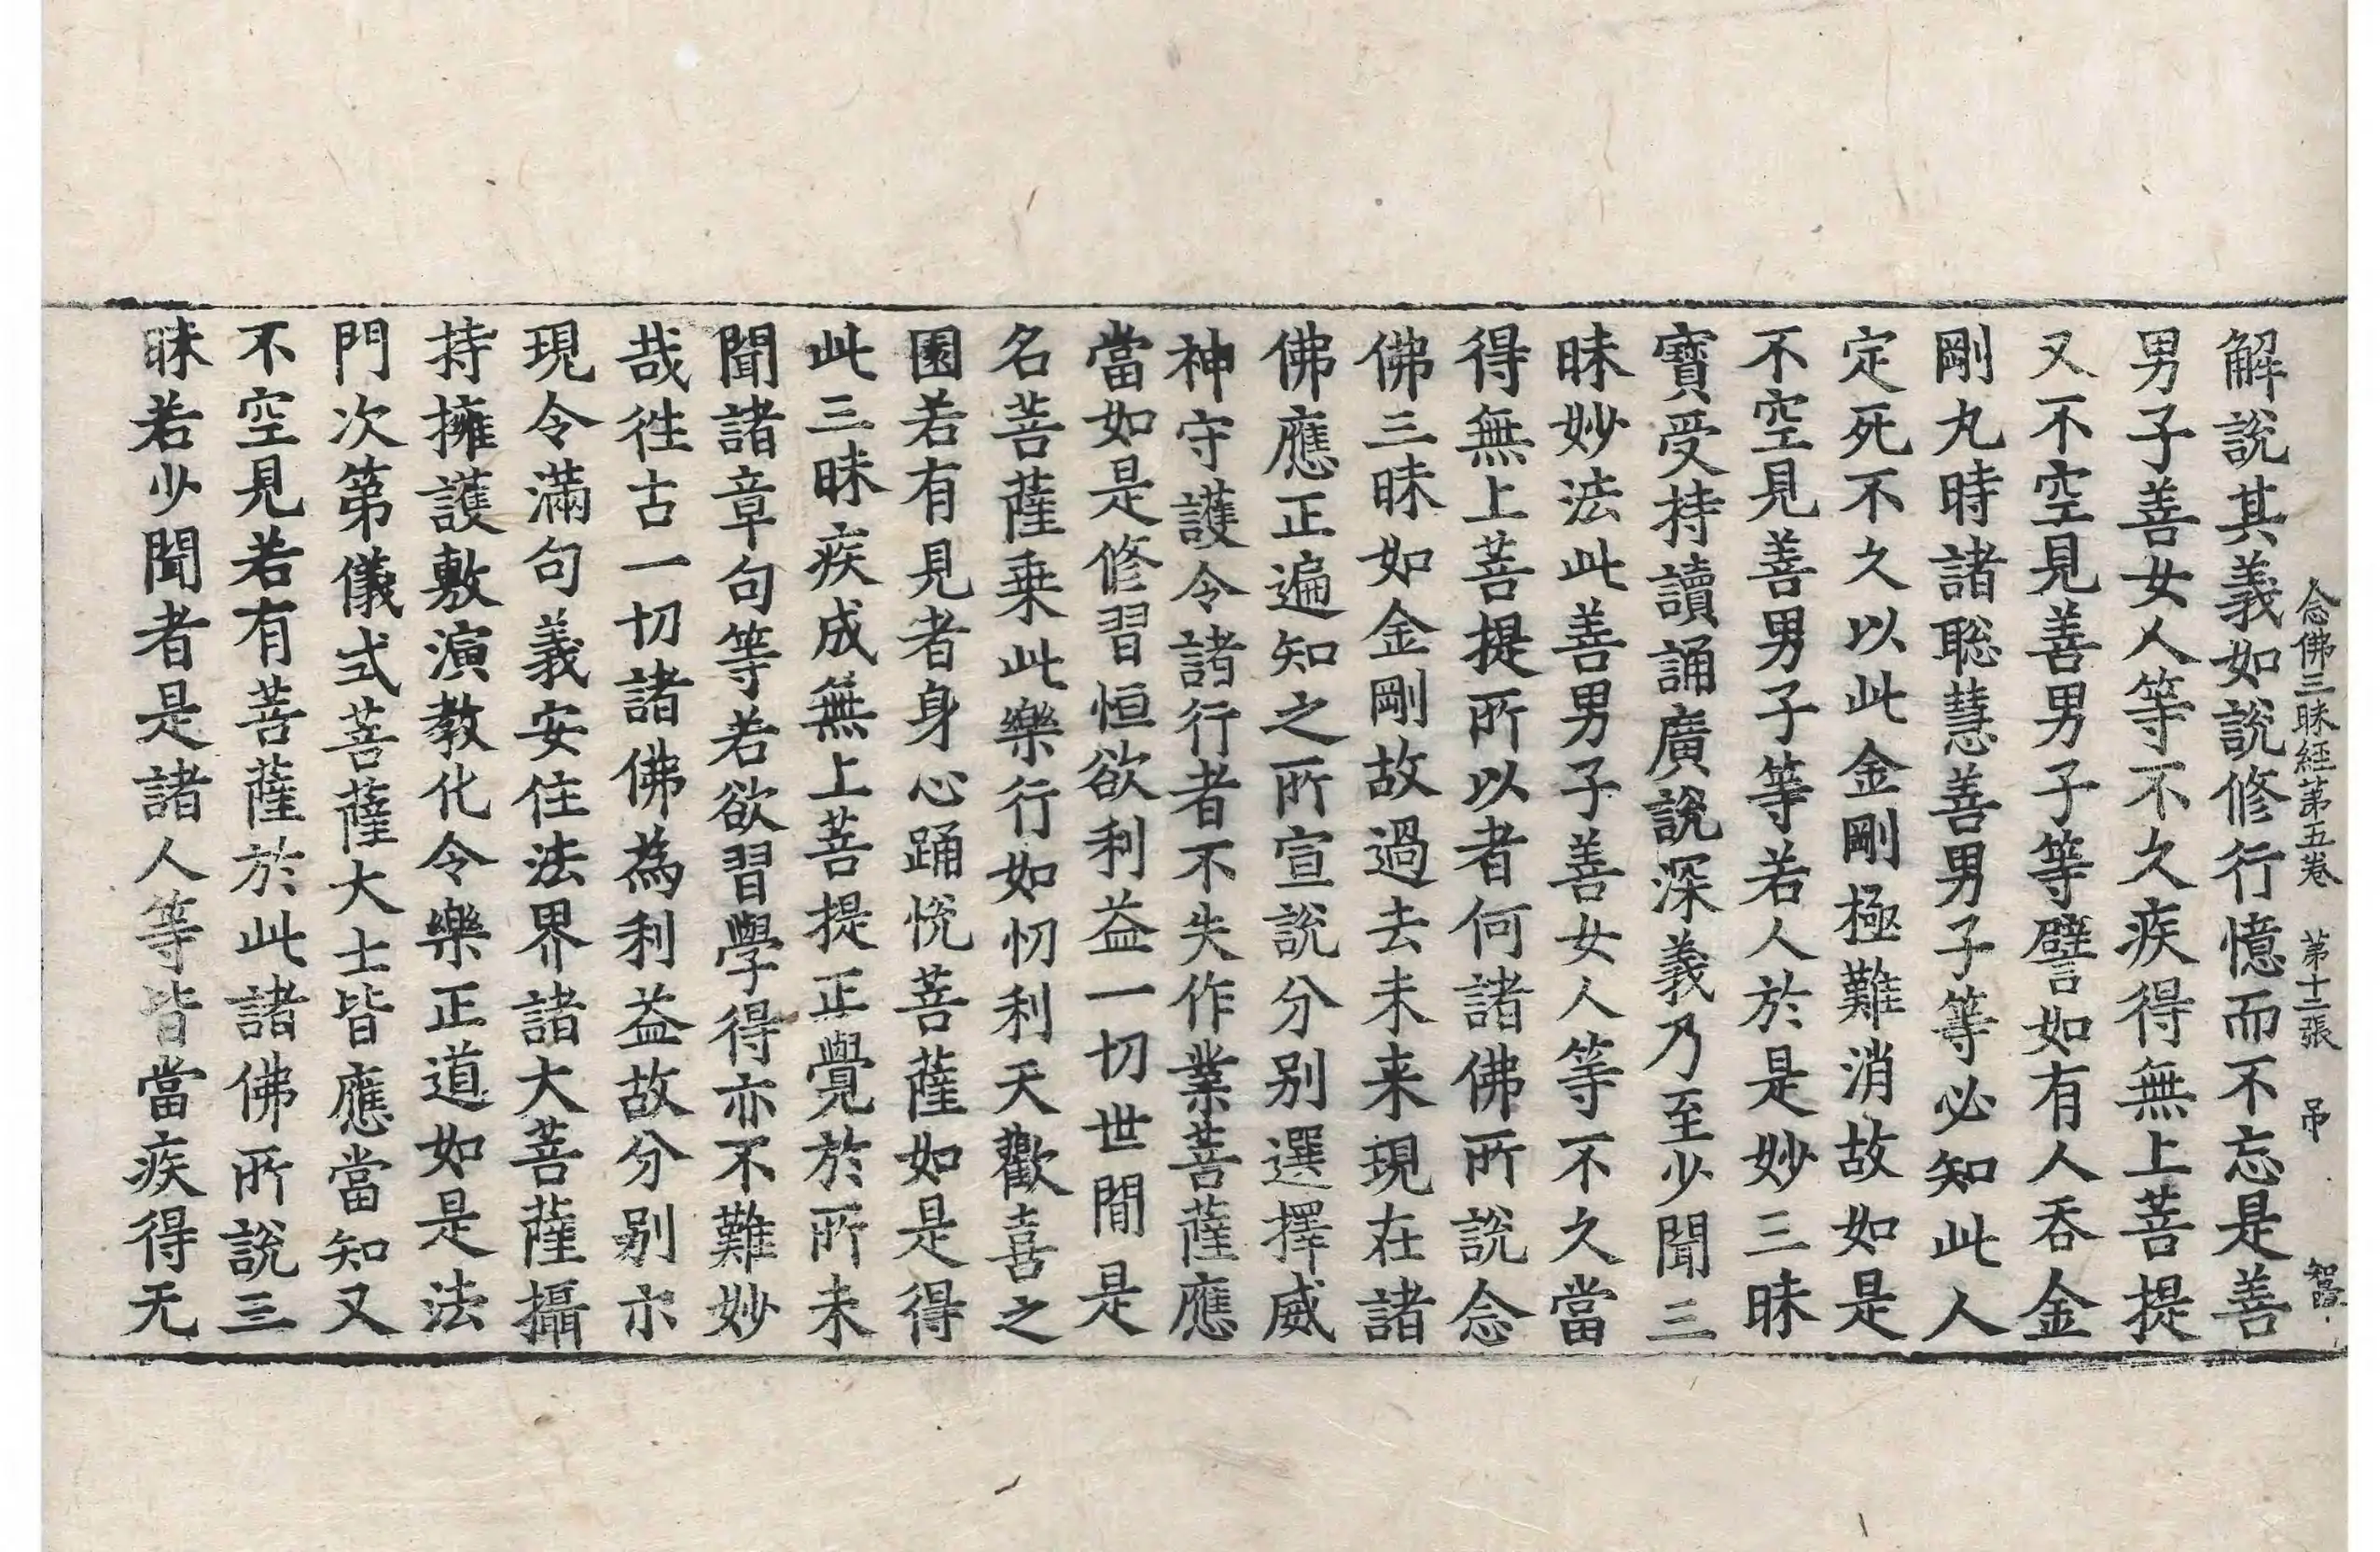 念佛三昧経第五巻 第十二張 吊
解說其義如說修行憶而不忘是善
男子善女人等不久疾得無上菩提
又不空見善男子等譬如有人吞金
剛丸時諸聡慧善男子等必知此人
定死不久以此金剛極難消故如是
不空見善男子等若人於是妙三昧
寶受持讀誦廣說深義乃至少聞三
昧妙法此善男子善女人等不久當
得無上菩提所以者何諸佛所說念
佛三昧如金剛故過去未来現在諸
佛應正遍知之所宣說分別選擇威
神守護令諸行者不失作業菩薩應
當如是修習恒欲利益一切世間是
名菩薩乗此樂行如忉利天歡喜之
園若有見者身心踊恱菩薩如是得
此三昧疾成無上菩提正覺於所未
聞諸章句等若欲習學得亦不難妙
哉徃古一切諸佛為利益故分别亦
現令滿句義安住法界諸大菩薩攝
持擁護敷演教化令樂正道如是法
門次第儀式菩薩大士皆應當知又
不空見若有菩薩於此諸佛所說三
昧若少聞者是諸人等皆當疾得无